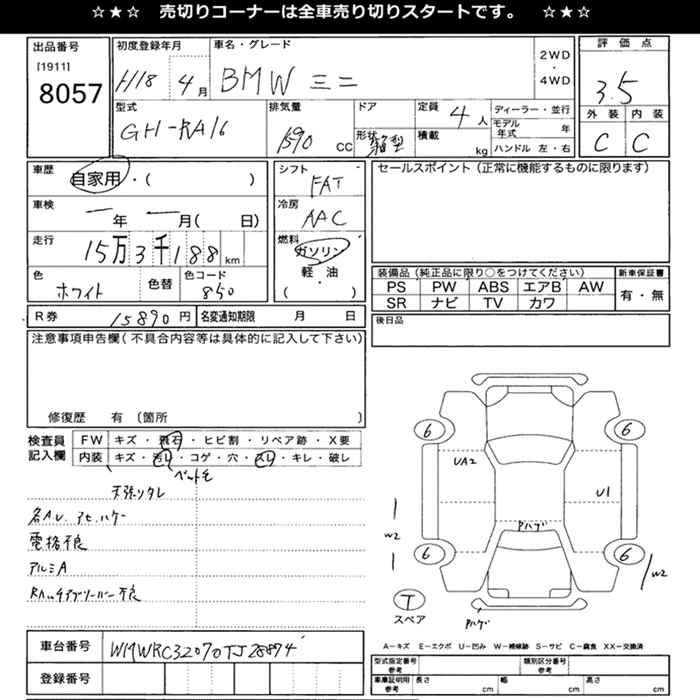 ☆★☆ 売切りコーナーは全車売り切りスタートです。 ☆★☆
出品番号 初度登録年月 車名・グレード 評価点
[1911] 2WD
8057 H18 4月 BMW ミニ ・ 4WD 3.5
型式 排気量 ドア 定員 4人 ディーラー・並行 外装 内装
GH-RA16 1590 CC 形状 箱型 積載 kg モデル年式 年 C C
ハンドル 左・右
車歴 自家用・( ) シフト FAT セールスポイント(正常に機能するものに限ります)
車検 ー年 ー月( 日) 冷房 AAC
走行 15万3千188km 燃料 ガソリン・
軽・油
( )
色 ホワイト 色替 色コード 850
装備品(純正品に限り○をつけてください) 新車保証書
PS PW ABS エアB AW 有・無
SR ナビ TV カワ
R券 15890円 名変通知期限 月 日 後日品
注意事項申告欄(不具合内容等は具体的に記入して下さい)
修復歴 有 (箇所 )
検査員 FW キズ・飛石・ヒビ割・リペア跡・X要
記入欄 内装 キズ・汚レ・コゲ・穴・スレ・キレ・破レ
ペット毛
天張りタレ
名AU. アセ.ハゲ
電格不良
アルミA
6 6
UA2 U1
W2 Pハゲ
6 6
W2
T
スペア Pハゲ
A-キズ E-エクボ U-凹み W-補修跡 S-サビ C-腐食 XX-交換済
車台番号 WMWRC32070TJ28874 型式指定番号 参考 類別区分番号 参考
登録番号 車庫証明用 参考 長さ cm 幅 cm 高さ cm